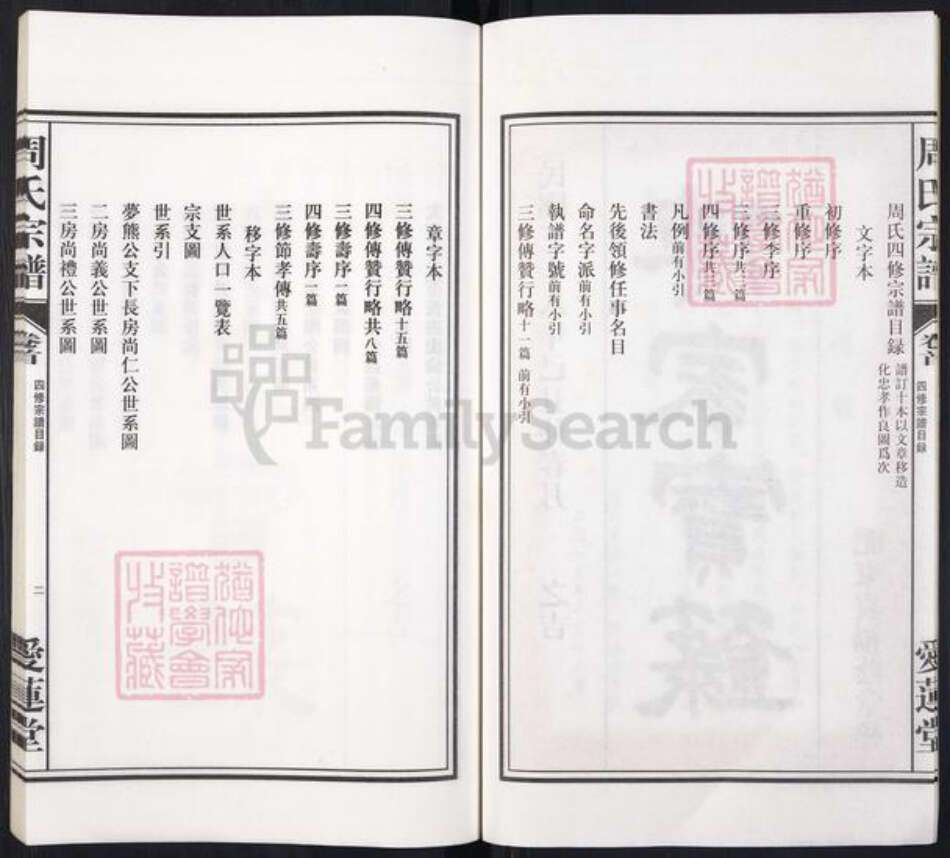 周氏宗譜
卷首
四修宗譜目録
愛蓮堂
周氏四修宗譜目録
譜訂十本以文章移造
化忠孝作良圖爲次
文字本
初修序
重修序
三修李序
三修序共三篇
四修序共二篇
凡例前有小引
書法
先後領修任事名目
命名字派前有小引
執譜字號前有小引
三修傳贊行略十一篇 前有小引
章字本
三修傳贊行略十五篇
四修傳贊行略共八篇
三修壽序一篇
四修壽序一篇
三修節孝傳共五篇
移字本
世系人口一覽表
宗支圖
世系引
夢熊公支下長房尚仁公世系圖
二房尚義公世系圖
三房尚禮公世系圖
周氏宗譜
卷首
四修宗譜目録
二
愛蓮堂
FamilySearch